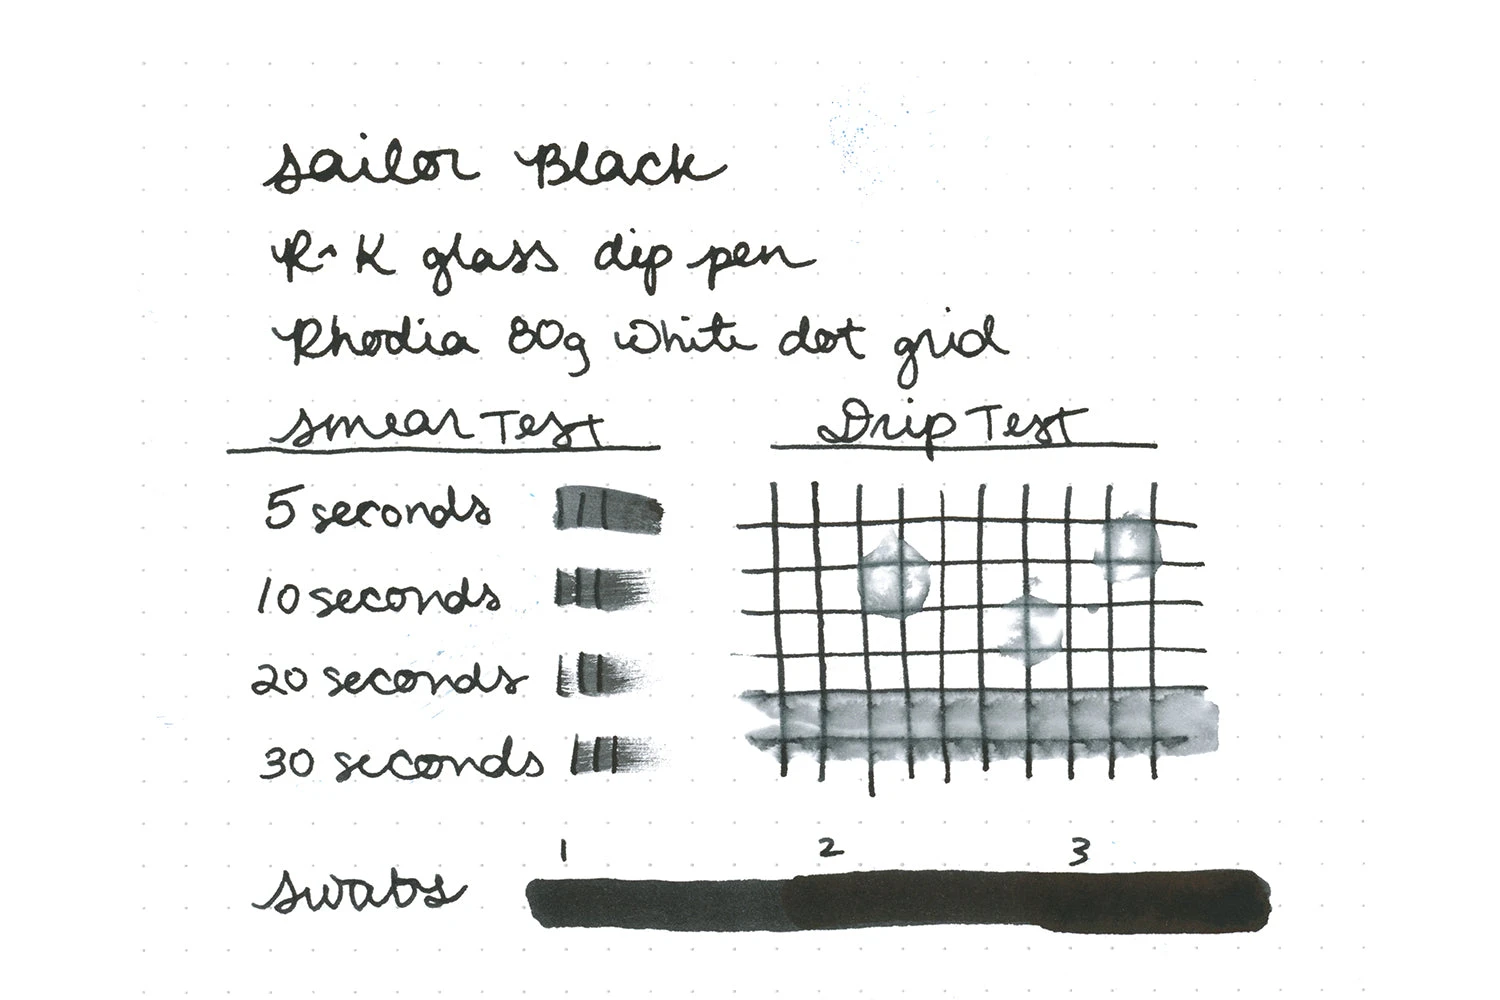 sailor Black
R-K glass dip pen
Rhodia 80g white dot grid
smear Test
Drip Test
5 seconds
10 seconds
20 seconds
30 seconds
1 2 3
swabs